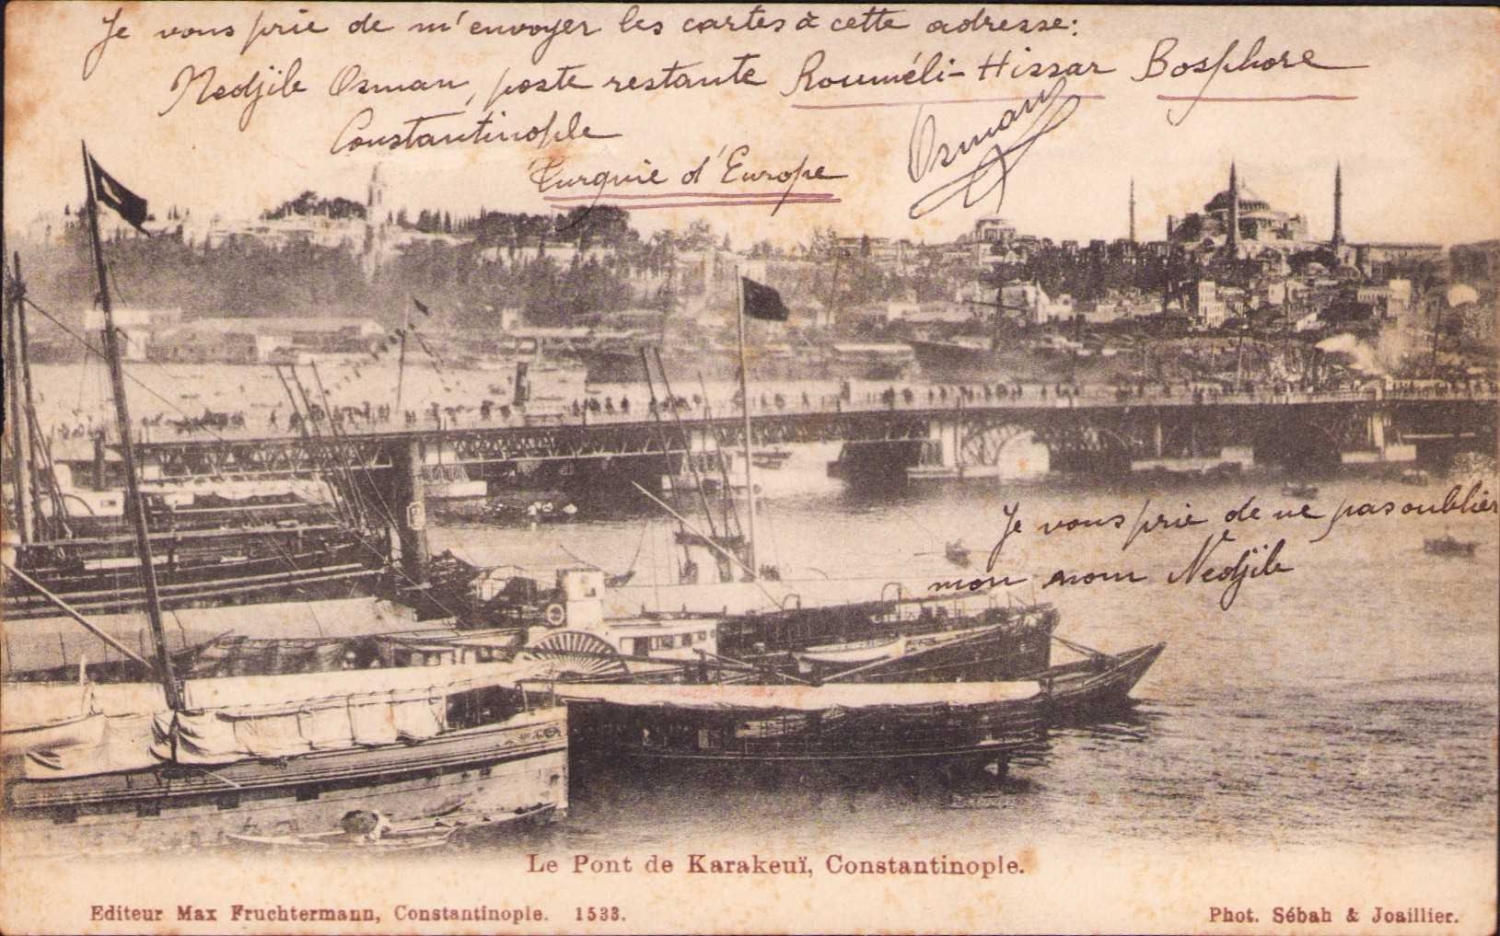 Je vous prie de m'envoyer les cartes à cette adresse:
Nedjile Osman, poste restante Rouméli-Hissar Bosphore
Constantinople
Turquie d'Europe
Osman
Je vous prie de ne pas oublier
mon nom Nedjile
Le Pont de Karakeuï, Constantinople.
Editeur Max Fruchtermann, Constantinople. 1533.
Phot. Sébah & Joaillier.